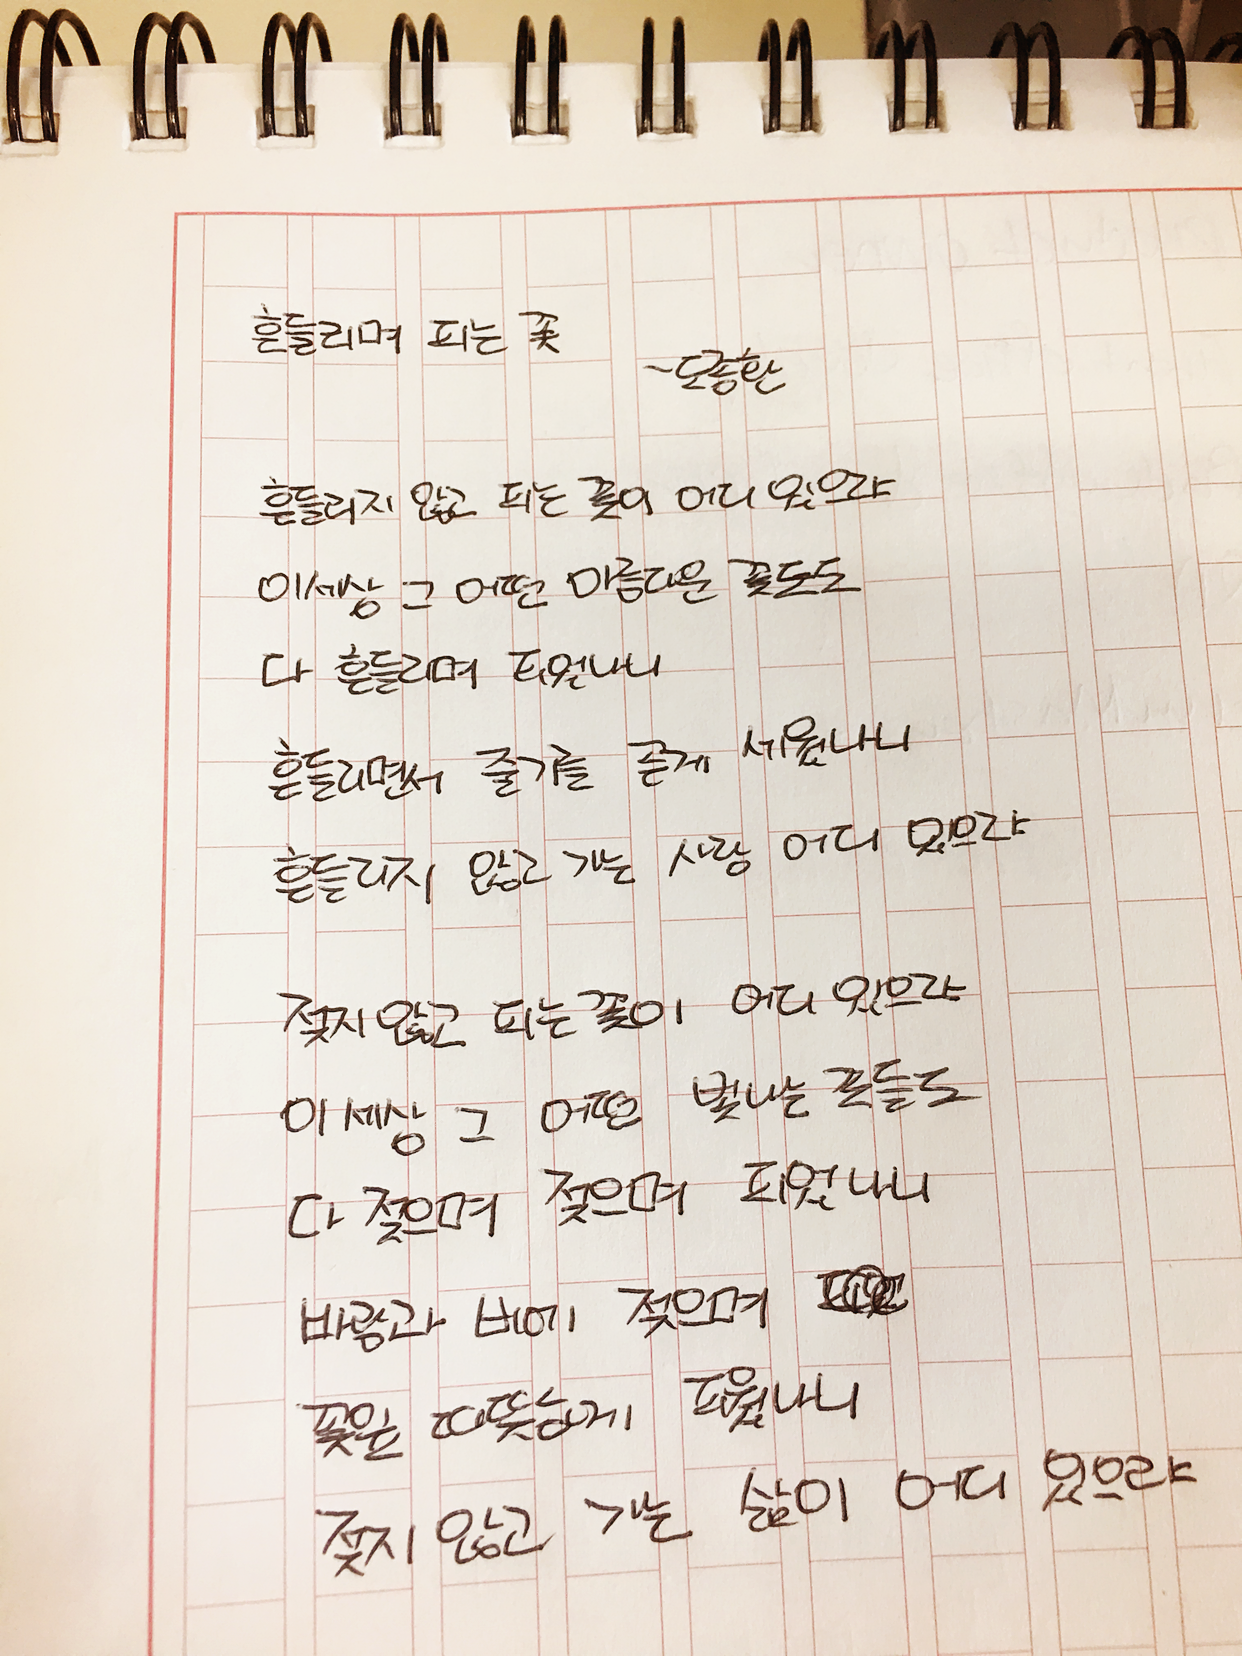 흔들리며 피는 꽃
~도종환
흔들리지 않고 피는 꽃이 어디 있으랴
이세상 그 어떤 아름다운 꽃도도
다 흔들리며 피웠나니
흔들리면서 줄기를 곧게 세웠나니
흔들리지 않고 가는 사랑 어디 있으랴
젖지 않고 피는 꽃이 어디 있으랴
이 세상 그 어떤 빛나는 꽃들도
다 젖으며 젖으며 피웠나니
바람과 비에 젖으며
꽃잎 따뜻하게 피웠나니
젖지 않고 가는 삶이 어디 있으랴